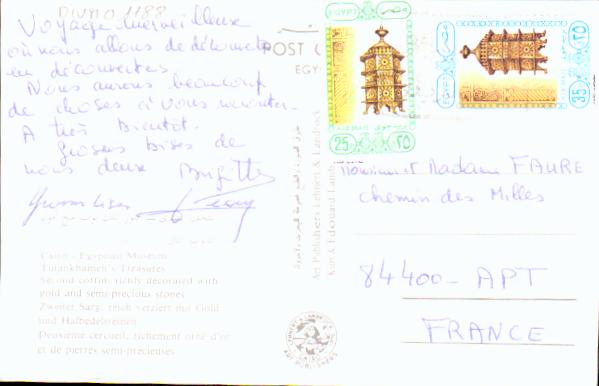 DIVMO 1188
Voyage merveilleuse
où nous allons de découvertes
en découvertes
Nous aurons beaucoup
de choses à vous raconter.
A très Bientôt.
Grosses Bises de
nous deux Brigitte
POST
EGY
EGYPT
AIR MAIL
25 ٢٥
EGYPT
35 ٣٥
Monsieur et Madame FAURE
Chemin des Milles
84400 - APT
FRANCE
Art Publishers Lehnert & Landrock
Kurt & Edouard Lamb
Cairo - Egyptian Museum
Tutankhamen's Treasures
Second coffin, richly decorated with
gold and semi-precious stones
Zweiter Sarg, reich verziert mit Gold
und Halbedelsteinen
Deuxième cercueil, richement orné d'or
et de pierres semi-précieuses